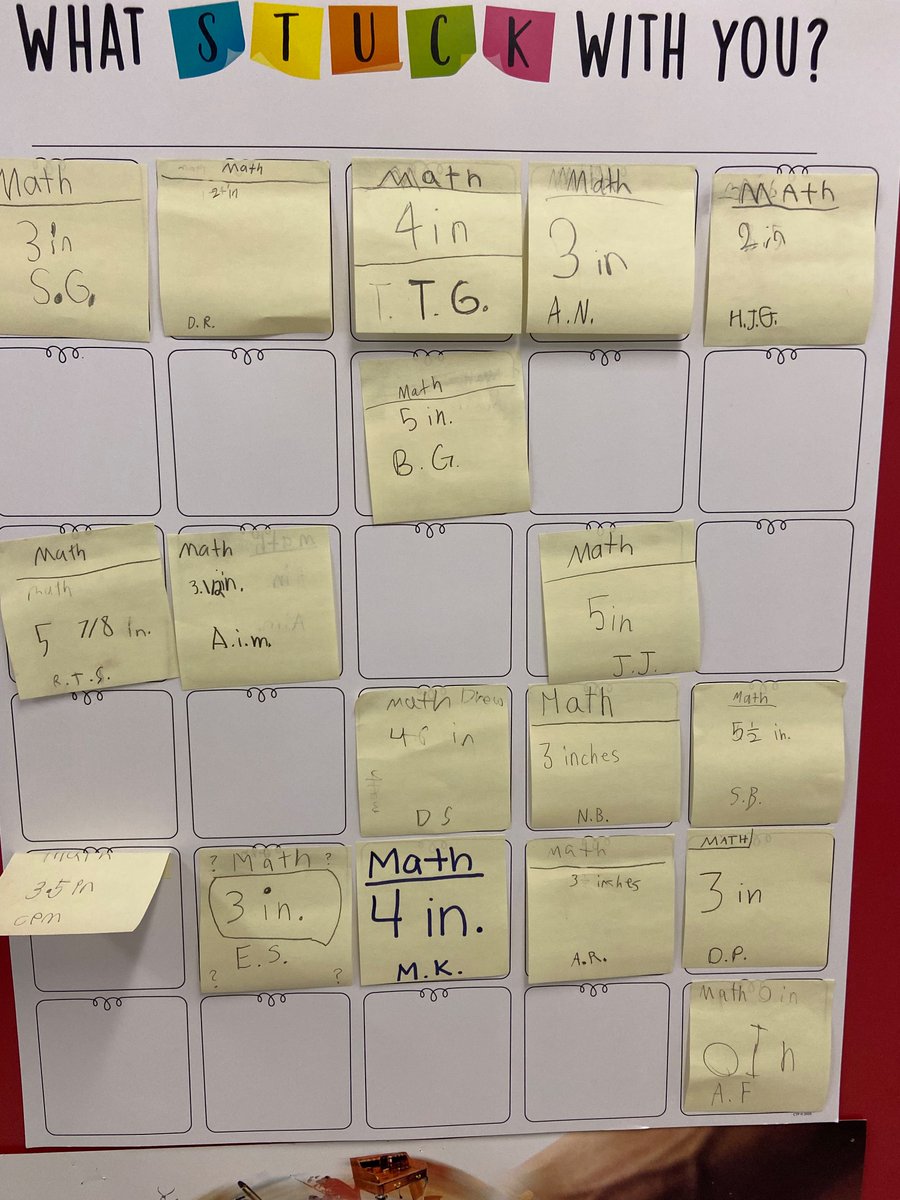 WHAT STUCK WITH YOU?
Math
3 in
S.G.
Math
2 in
D.R.
Math
4 in
T. T. G.
Math
3 in
A.N.
MAth
2 in
H.J.G.
Math
5 in.
B.G.
Math
math
5 7/8 in.
R.T.S.
math
3.1/2in.
A.i.m.
Math
5in
J.J.
math Drew
in
D S
Math
3 inches
N.B.
Math
5½ in.
S.B.
3.5
? Math ?
3 in.
E.S.
? ?
Math
4 in.
M.K.
math
inches
A.R.
MATH
3 in
D.P.
Math 0 in
0 In
A.F